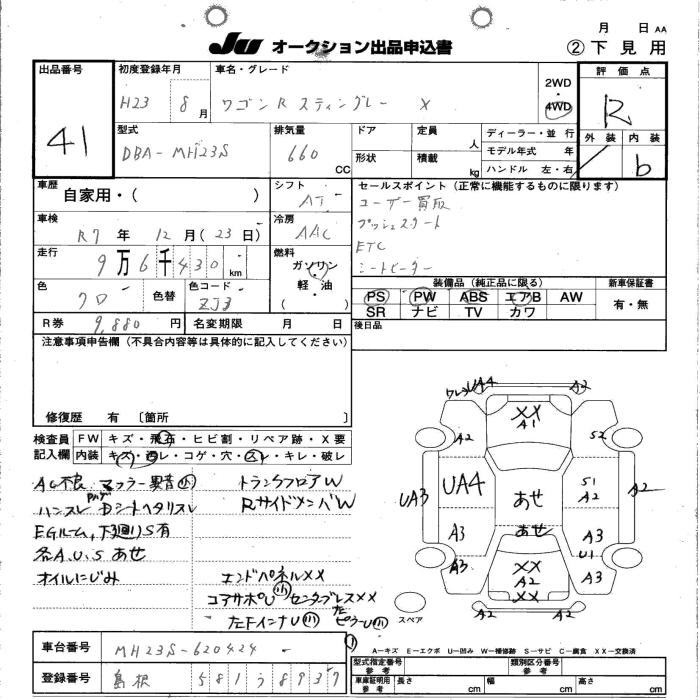 Ju オークション出品申込書
月 日 AA
② 下見用
出品番号 41
初度登録年月 H23 8月
車名・グレード ワゴンR スティングレー X
2WD・4WD
評価点 R
外装 内装 b
型式 DBA-MH23S
排気量 660 CC
ドア 形状
定員 人
積載 kg
ディーラー・並行
モデル年式 年
ハンドル 左・右
車歴 自家用・( )
シフト AT
セールスポイント(正常に機能するものに限ります)
ユーザー買取
プッシュスタート
ETC
シートヒーター
車検 R7年 12月(23日)
冷房 AAC
走行 9万6千430km
燃料 ガソリン・軽・油 ( )
色 クロ
色替
色コード ZJ3
装備品(純正品に限る)
新車保証書
PS PW ABS エアB AW
有・無
SR ナビ TV カワ
R券 9,880円
名変期限 月 日
後日品
注意事項申告欄(不具合内容等は具体的に記入してください)
修復歴 有 〔箇所 〕
検査員記入欄
FW キズ・飛石・ヒビ割・リペア跡・X要
内装 キズ・汚レ・コゲ・穴・スレ・キレ・破レ
AC不良 マフラー異音小
トランクフロアW
ハンスレ Dシートヘタリスレ
RサイドメンバW
EGルーム、下廻りS有
各A.U.S あせ
オイルにじみ
エンドパネルXX
コアサポU小 センタブレスXX
小
ワレ UA4 A2
XX
A1
A2 S2
UA3 UA4 あせ S1 A2 A2
A3 あせ A3
U1
A3 XX A2 A3
XX
A2 A2
スペア
A-キズ E-エクボ U-凹み W-補修跡 S-サビ C-腐食 XX-交換済
車台番号 MH23S-620424
登録番号 島根 581 う 8937
型式指定番号 参考
類別区分番号 参考
車庫証明用 参考 長さ cm 幅 cm 高さ cm